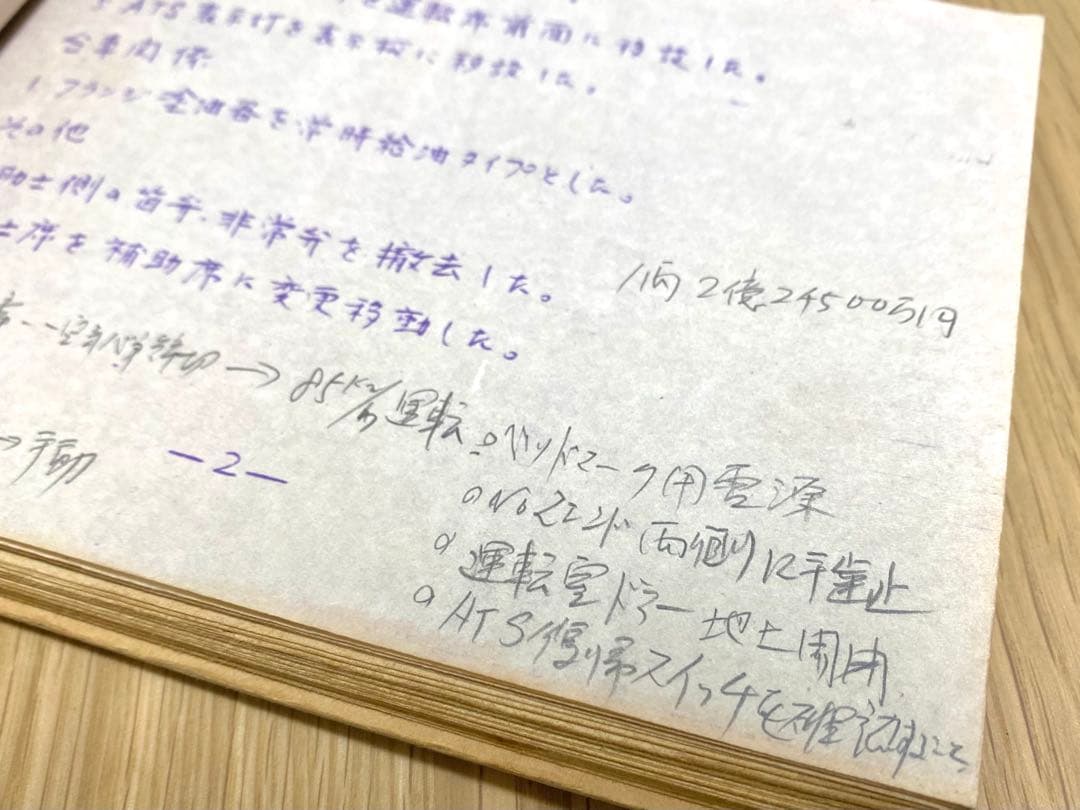 を運転席前面に移設した。
5 ATS表示灯を表示板に移設した。
台車関係
1. フランジ塗油器を常時給油タイプとした。
その他
助士側の笛弁、非常弁を撤去した。
士席を補助席に変更移動した。
1両2億24500万円
→ 85km/h運転
→手動
—2—
○ヘッドマーク用電源
○No2エンド(両側)に手歯止
○運転室ドアー地上開用
○ATS復帰スイッチを確認すること